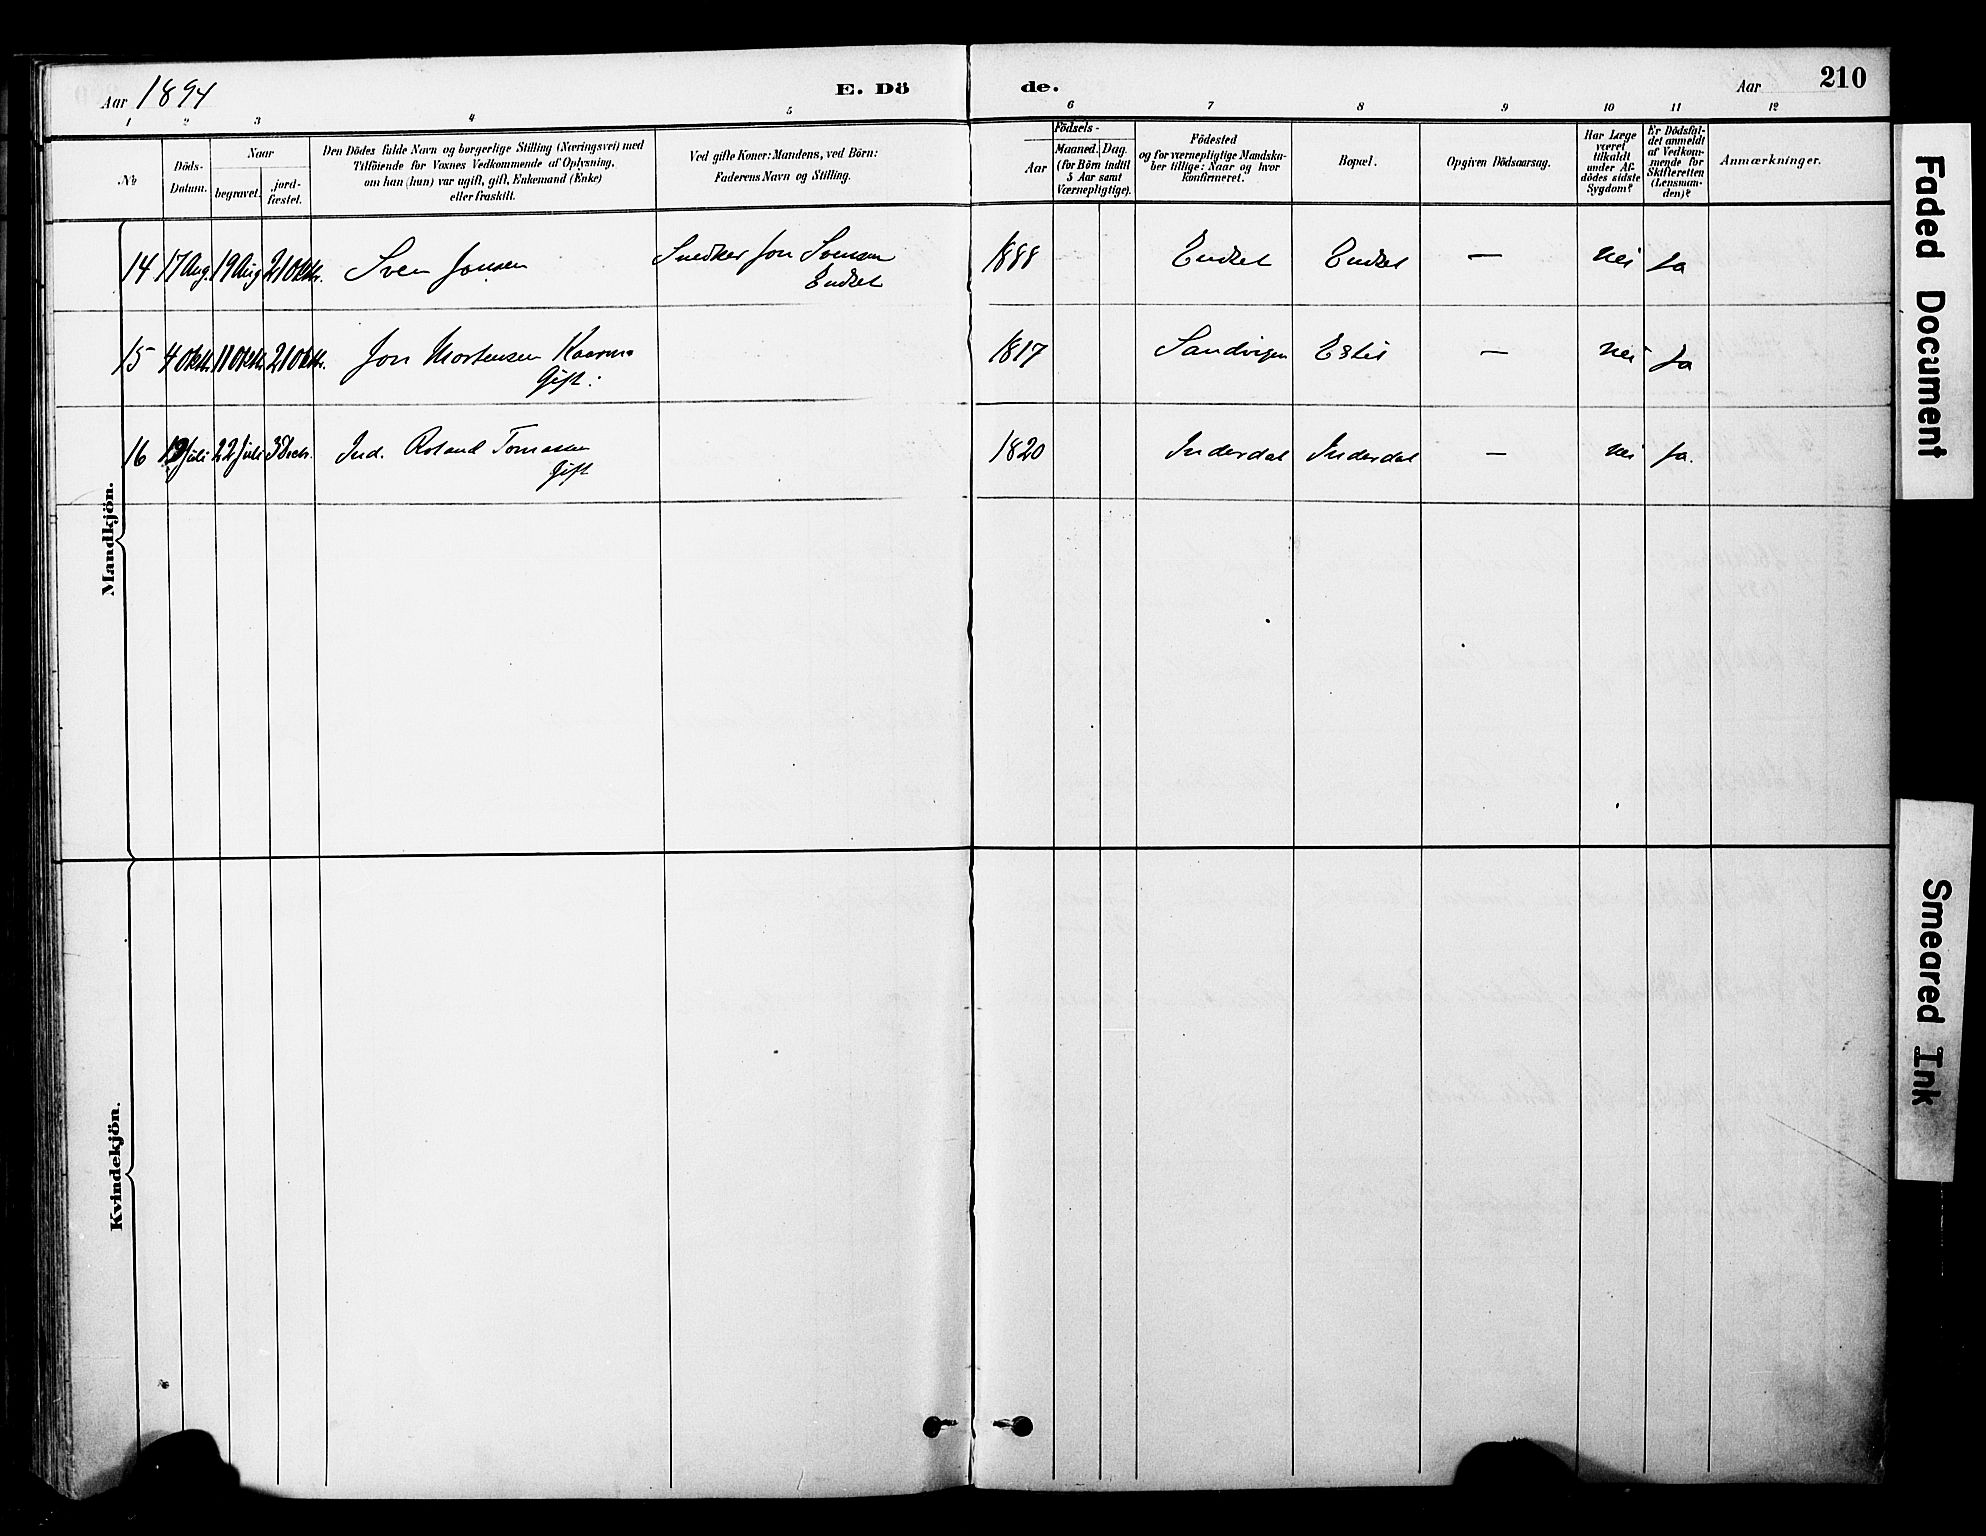 Aar 1894 E. Dö de. Aar 210
1 2 3 4 5 6 7 8 9 10 11 12
No
Döds-Datum.
Naar
begravet.
jord-fæstet.
Den Dödes fulde Navn og borgerlige Stilling (Næringsvei) med
Tilföiende for Voxnes Vedkommende af Oplysning,
om han (hun) var ugift, gift, Enkemand (Enke)
eller fraskilt.
Ved gifte Koner: Mandens, ved Börn:
Faderens Navn og Stilling.
Födsels-
Aar
Maaned. Dag.
(for Börn indtil
5 Aar samt
Værnepligtige).
Födested
og for værnepligtige Mandska-
ber tillige: Naar og hvor
konfirmeret.
Bopæl.
Opgiven Dödsaarsag.
Har Læge
været
tilkaldt
under Af-
dödes sidste
Sygdom?
Er Dödsfal-
det anmeldt
af Vedkom-
mende for
Skifteretten
(Lensman-
den)?
Anmærkninger.
14 17 Aug. 19 Aug 21 Oktr. Sven Jonsen Snedker Jon Svensen 1888 Endset Endset — Nei Ja
Endset
15 4 Oktr. 11 Oktr. 21 Oktr. Jon Mortensen 1817 Sandvigen — Nei Ja
Gift.
16 Juli 22 Juli 3 Decbr. Ind. Roland Tomassen 1820 Inderdal Inderdal — Nei Ja.
Gift
Mandkjön.
Kvindekjön.
Faded Document
Smeared Ink